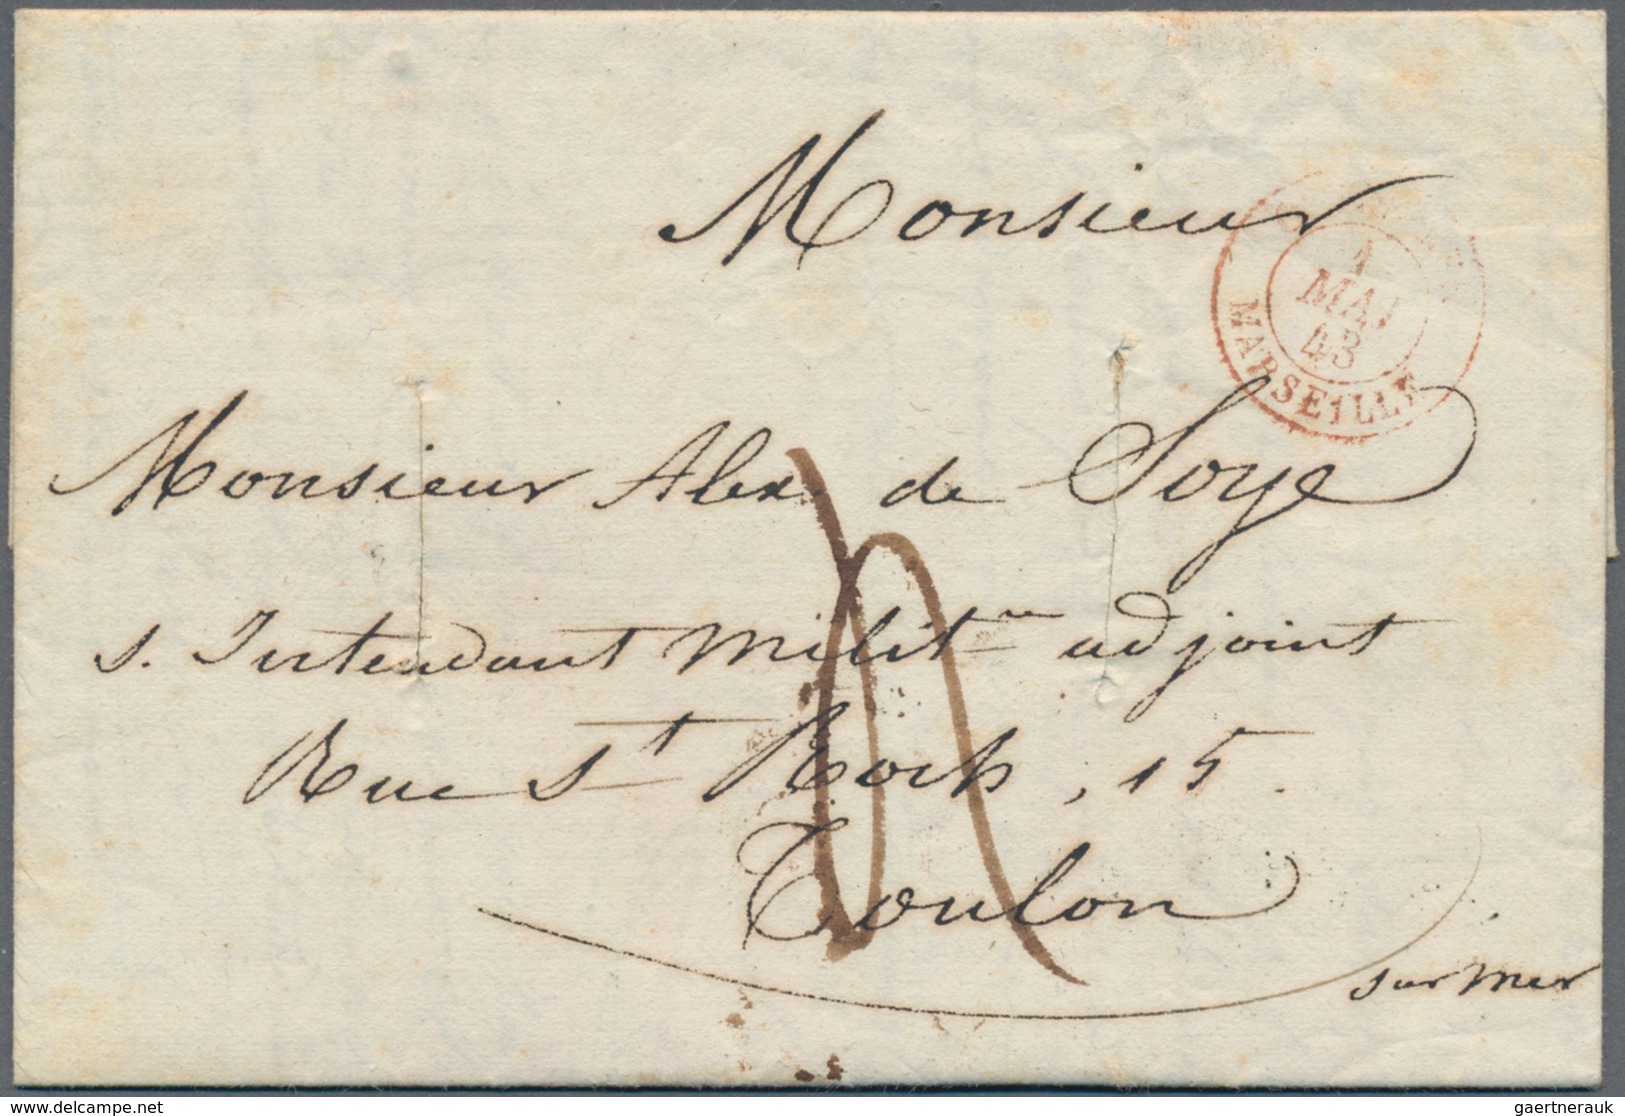 Monsieur
1
MAI
43
MARSEILLE
Monsieur Alex de Soye
s. Intendant milit.re adjoint
Rue St Roch, 15.
Toulon
sur mer
delcampe.net
gaertnerauk